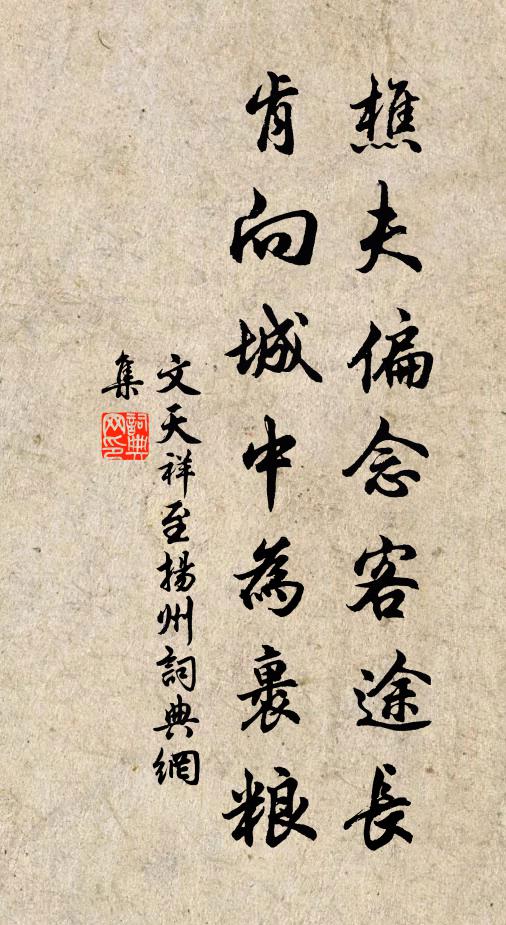 樵夫偏念客途長
肯向城中為裹粮
文天祥至揚州詞典網
集
詞典
网印